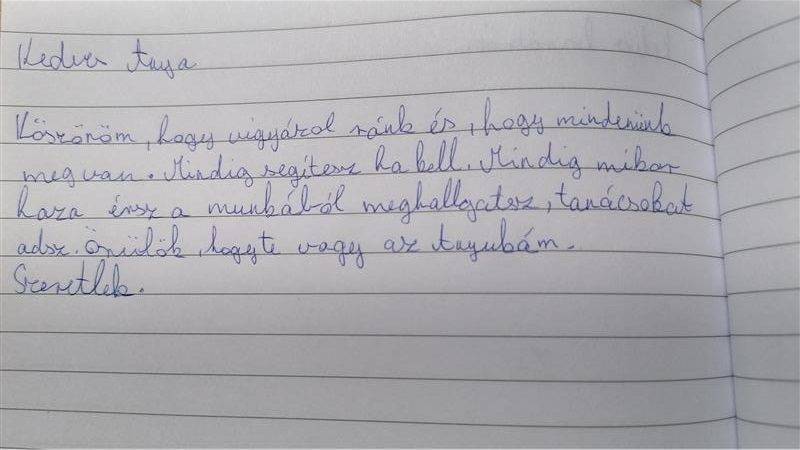 Kedves Anya
Köszönöm, hogy vigyázol ránk és, hogy mindenünk
meg van. Mindig segítesz ha kell. Mindig mikor
haza érsz a munkából meghallgatsz, tanácsokat
adsz. Örülök, hogy te vagy az Anyukám.
Szeretlek.